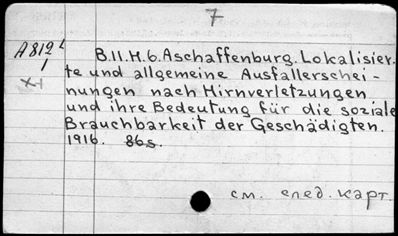 7
A812 L
1
XI
B.II.H.6. Aschaffenburg. Lokalisier-
te und allgemeine Ausfallerschei-
nungen nach Hirnverletzungen
und ihre Bedeutung für die soziale
Brauchbarkeit der Geschädigten.
1916. 86s.
см. след. карт.